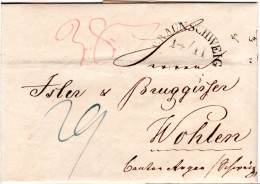 BRAUNSCHWEIG
14/11
Herren
Isler & Bruggisser
29
Wohlen
Canton Argau / Schweiz